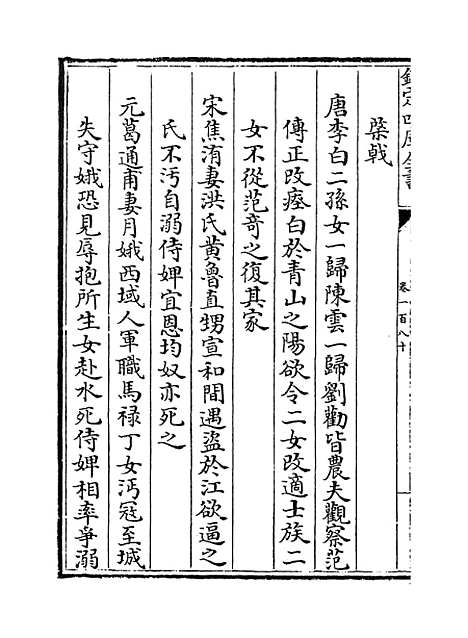 欽定四庫全書
卷一百八十
棨戟
唐李白二孫女一歸陳雲一歸劉勸皆農夫觀察范
傳正改瘞白於青山之陽欲令二女改適士族二
女不從范奇之復其家
宋焦洧妻洪氏黄魯直甥宣和間遇盜於江欲逼之
氏不汚自溺侍婢宜恩均奴亦死之
元葛通甫妻月娥西域人軍職馬禄丁女沔冦至城
失守娥恐見辱抱所生女赴水死侍婢相率爭溺